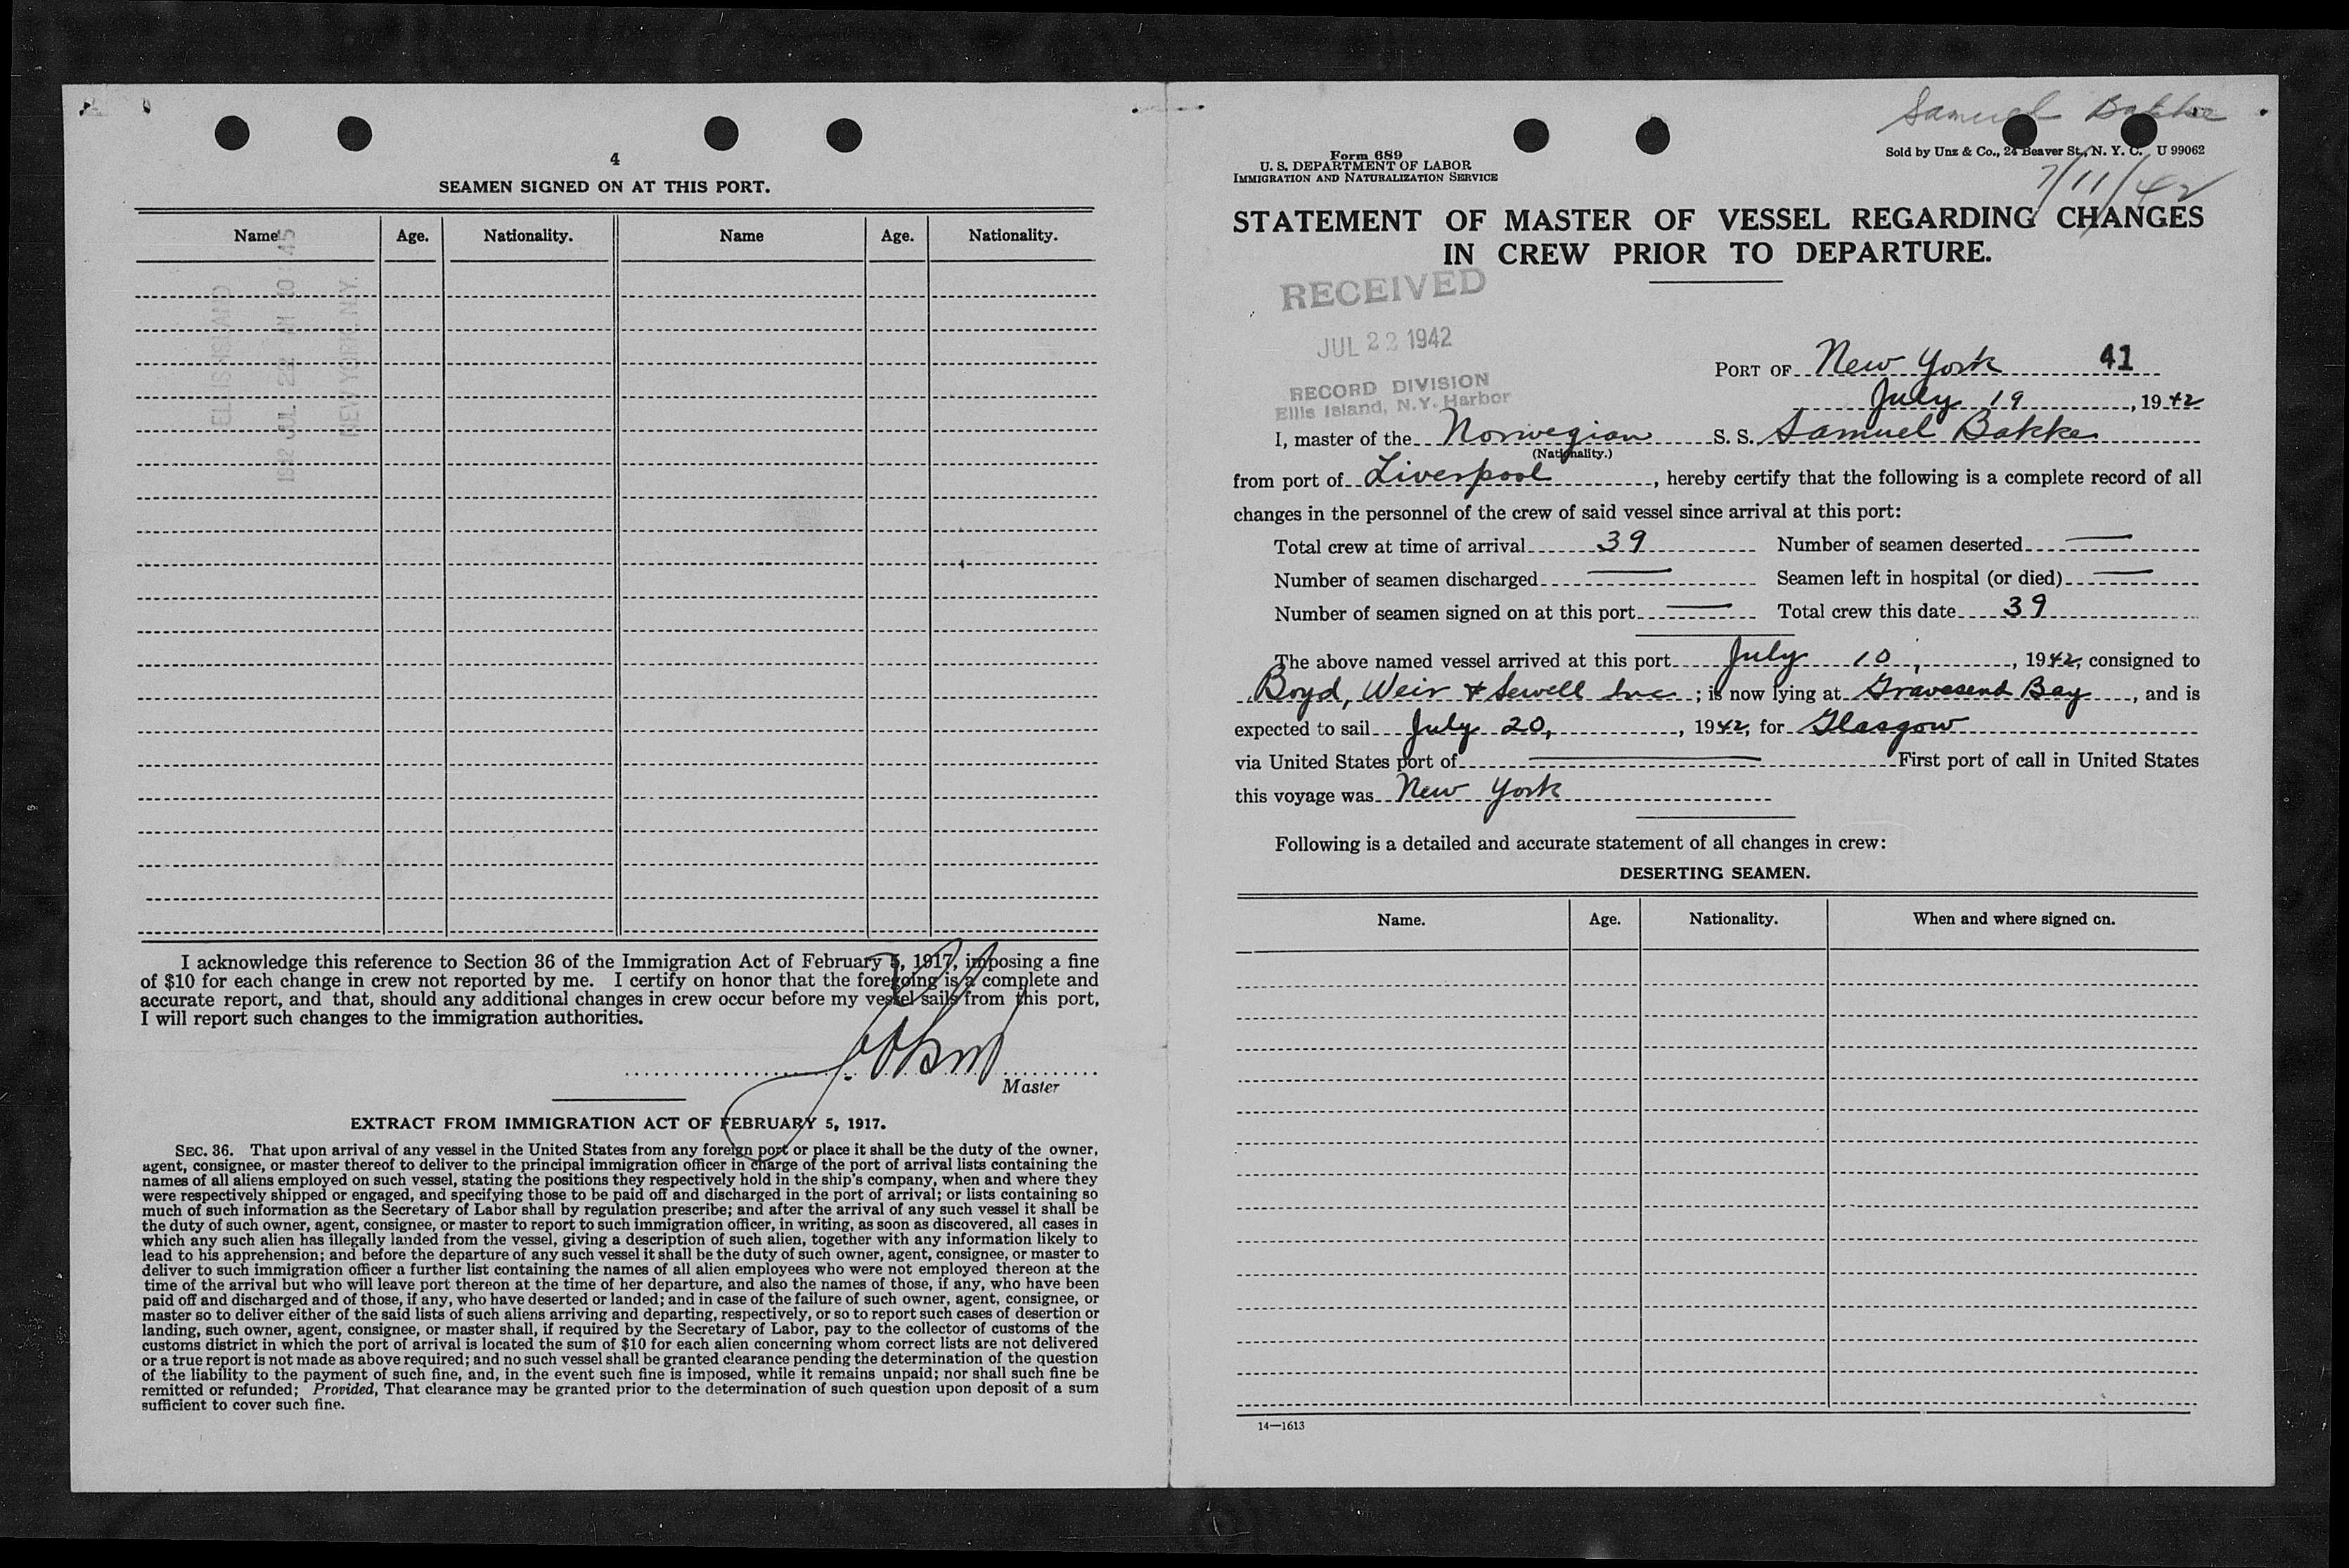 4
SEAMEN SIGNED ON AT THIS PORT.
Name Age. Nationality. Name Age. Nationality.
ELLIS ISLAND
1942 JUL 22 10 45
NEW YORK, N.Y.
I acknowledge this reference to Section 36 of the Immigration Act of February 5, 1917, imposing a fine
of $10 for each change in crew not reported by me. I certify on honor that the foregoing is a complete and
accurate report, and that, should any additional changes in crew occur before my vessel sails from this port,
I will report such changes to the immigration authorities.
Master
EXTRACT FROM IMMIGRATION ACT OF FEBRUARY 5, 1917.
SEC. 36. That upon arrival of any vessel in the United States from any foreign port or place it shall be the duty of the owner,
agent, consignee, or master thereof to deliver to the principal immigration officer in charge of the port of arrival lists containing the
names of all aliens employed on such vessel, stating the positions they respectively hold in the ship's company, when and where they
were respectively shipped or engaged, and specifying those to be paid off and discharged in the port of arrival; or lists containing so
much of such information as the Secretary of Labor shall by regulation prescribe; and after the arrival of any such vessel it shall be
the duty of such owner, agent, consignee, or master to report to such immigration officer, in writing, as soon as discovered, all cases in
which any such alien has illegally landed from the vessel, giving a description of such alien, together with any information likely to
lead to his apprehension; and before the departure of any such vessel it shall be the duty of such owner, agent, consignee, or master to
deliver to such immigration officer a further list containing the names of all alien employees who were not employed thereon at the
time of the arrival but who will leave port thereon at the time of her departure, and also the names of those, if any, who have been
paid off and discharged and of those, if any, who have deserted or landed; and in case of the failure of such owner, agent, consignee, or
master so to deliver either of the said lists of such aliens arriving and departing, respectively, or so to report such cases of desertion or
landing, such owner, agent, consignee, or master shall, if required by the Secretary of Labor, pay to the collector of customs of the
customs district in which the port of arrival is located the sum of $10 for each alien concerning whom correct lists are not delivered
or a true report is not made as above required; and no such vessel shall be granted clearance pending the determination of the question
of the liability to the payment of such fine, and, in the event such fine is imposed, while it remains unpaid; nor shall such fine be
remitted or refunded; Provided, That clearance may be granted prior to the determination of such question upon deposit of a sum
sufficient to cover such fine.
Samuel Bakke
Form 689
U. S. DEPARTMENT OF LABOR
IMMIGRATION AND NATURALIZATION SERVICE
Sold by Unz & Co., 24 Beaver St., N. Y. C. U 99062
7/11/42
STATEMENT OF MASTER OF VESSEL REGARDING CHANGES
IN CREW PRIOR TO DEPARTURE.
RECEIVED
JUL 22 1942
RECORD DIVISION
Ellis Island, N.Y. Harbor
PORT OF New York 41
July 19, 1942
I, master of the Norwegian S. S. Samuel Bakke
(Nationality.)
from port of Liverpool, hereby certify that the following is a complete record of all
changes in the personnel of the crew of said vessel since arrival at this port:
Total crew at time of arrival 39 Number of seamen deserted —
Number of seamen discharged — Seamen left in hospital (or died) —
Number of seamen signed on at this port — Total crew this date 39
The above named vessel arrived at this port July 10, , 1942, consigned to
Boyd, Weir & Sewell Inc ; is now lying at Gravesend Bay, and is
expected to sail July 20, , 1942, for Glasgow
via United States port of — First port of call in United States
this voyage was New York
Following is a detailed and accurate statement of all changes in crew:
DESERTING SEAMEN.
Name. Age. Nationality. When and where signed on.
14—1613